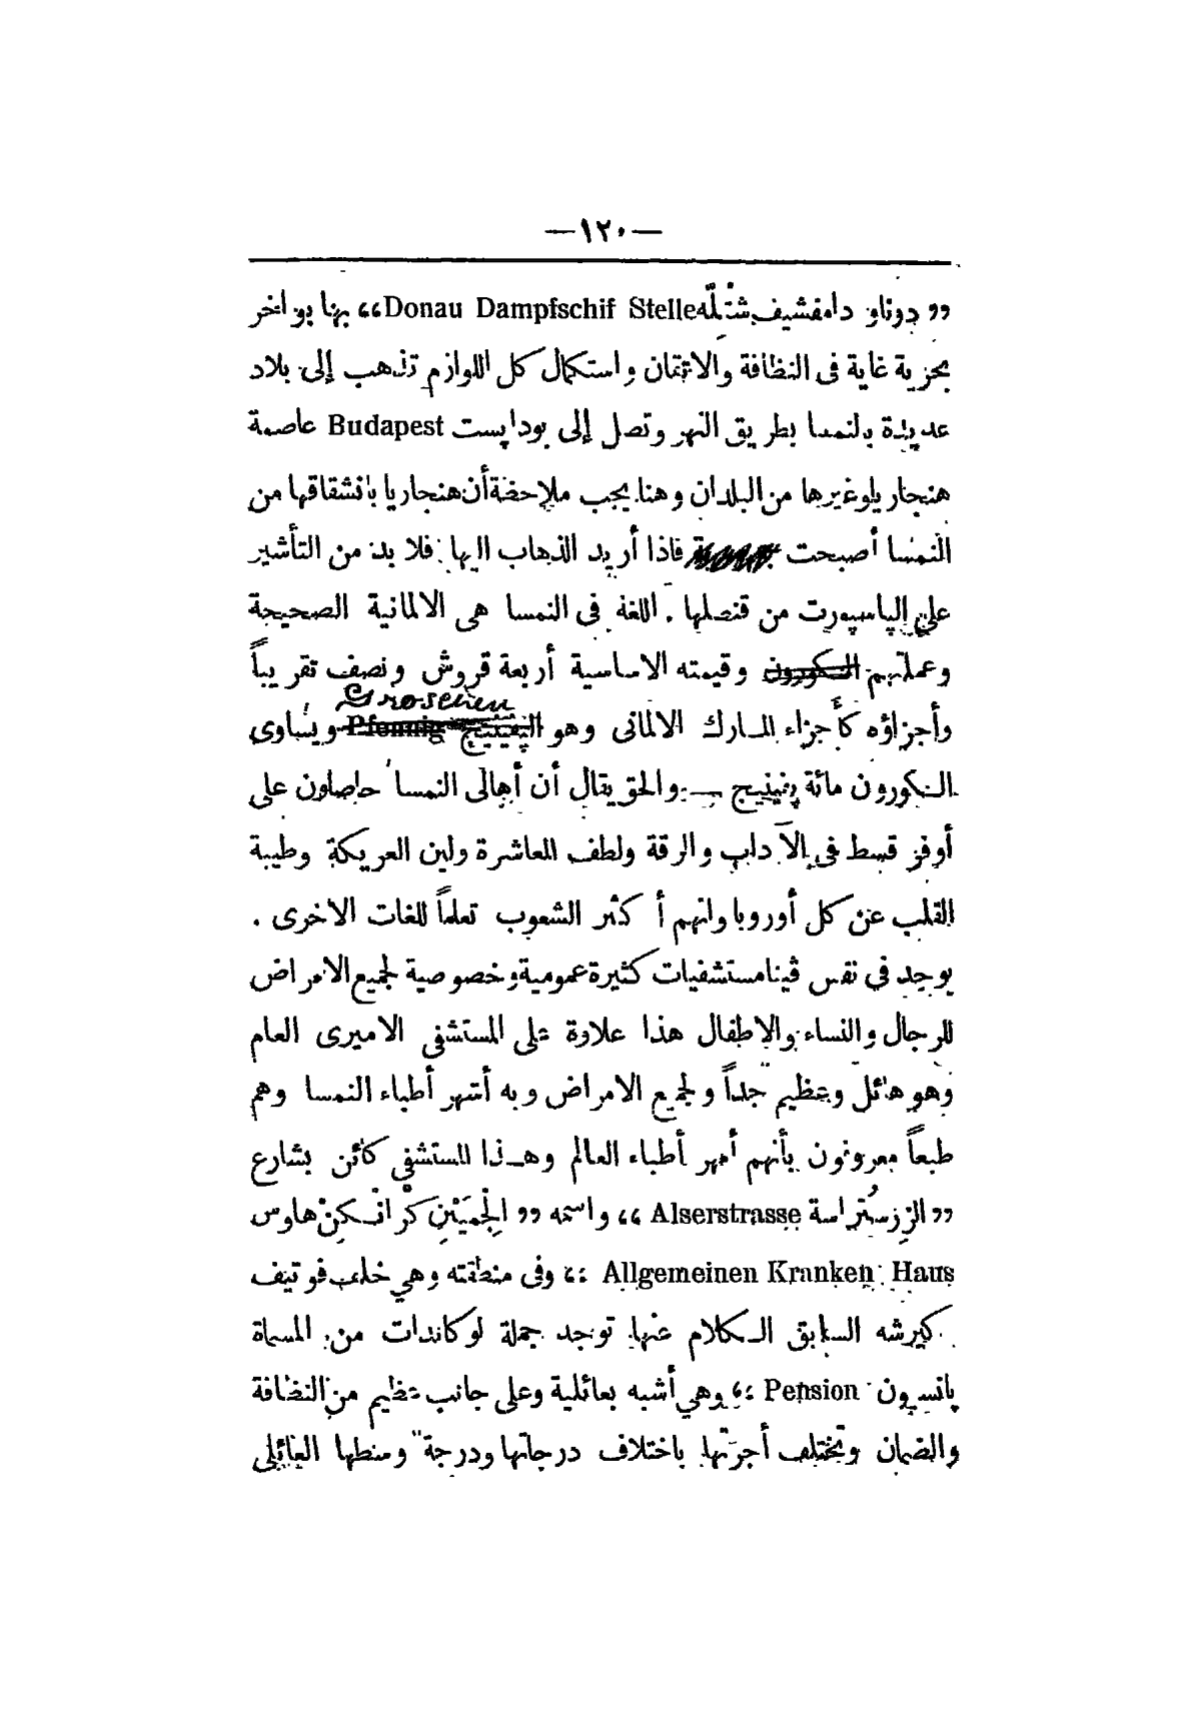 —١٢٠—
«دوناو دامفشيف شتْلّه Donau Dampfschif Stelle» بها بواخر
بحرية غاية فى النظافة والائتمان واستكمال كل اللوازم تذهب إلى بلاد
عديدة بالنمسا بطريق النهر وتصل إلى بوداپست Budapest عاصمة
هنجاريا وغيرها من البلدان وهنا يجب ملاحظة أن هنجاريا بانشقاقها من
النمسا أصبحت فاذا أريد الذهاب اليها فلا بد من التأشير
على الپاسپورت من قنصلها . اللغة فى النمسا هى الالمانية الصحيحة
وعملتهم الكورون وقيمته الاساسية أربعة قروش ونصف تقريباً
Groschen
وأجزاؤه كأجزاء المارك الالمانى وهو الپفينيج Pfennig ويساوى
الكورون مائة پفينيج — والحق يقال أن أهالى النمسا حاصلون على
أوفر قسط فى الآداب والرقة ولطف المعاشرة ولين العريكة وطيبة
القلب عن كل أوروبا وانهم أكثر الشعوب تعلماً للغات الاخرى .
يوجد فى نفس ڤينا مستشفيات كثيرة عمومية وخصوصية لجميع الامراض
للرجال والنساء والاطفال هذا علاوة على المستشفى الاميرى العام
وهو هائل وعظيم جداً ولجميع الامراض وبه أشهر أطباء النمسا وهم
طبعاً معروفون بأنهم أمهر أطباء العالم وهذا المستشفى كائن بشارع
«الزرستُراسة Alserstrasse» واسمه «الجْمَيْنِن كرْانْكنْ هاوس
Allgemeinen Kranken Haus» وفى منطقته وهي خلف فوتيف
كيرشه السابق الكلام عنها توجد جملة لوكاندات من المسماة
پانسيون Pension» وهي أشبه بعائلية وعلى جانب عظيم من النظافة
والضمان وتختلف أجرتها باختلاف درجاتها ودرجة ومنطها العائلى